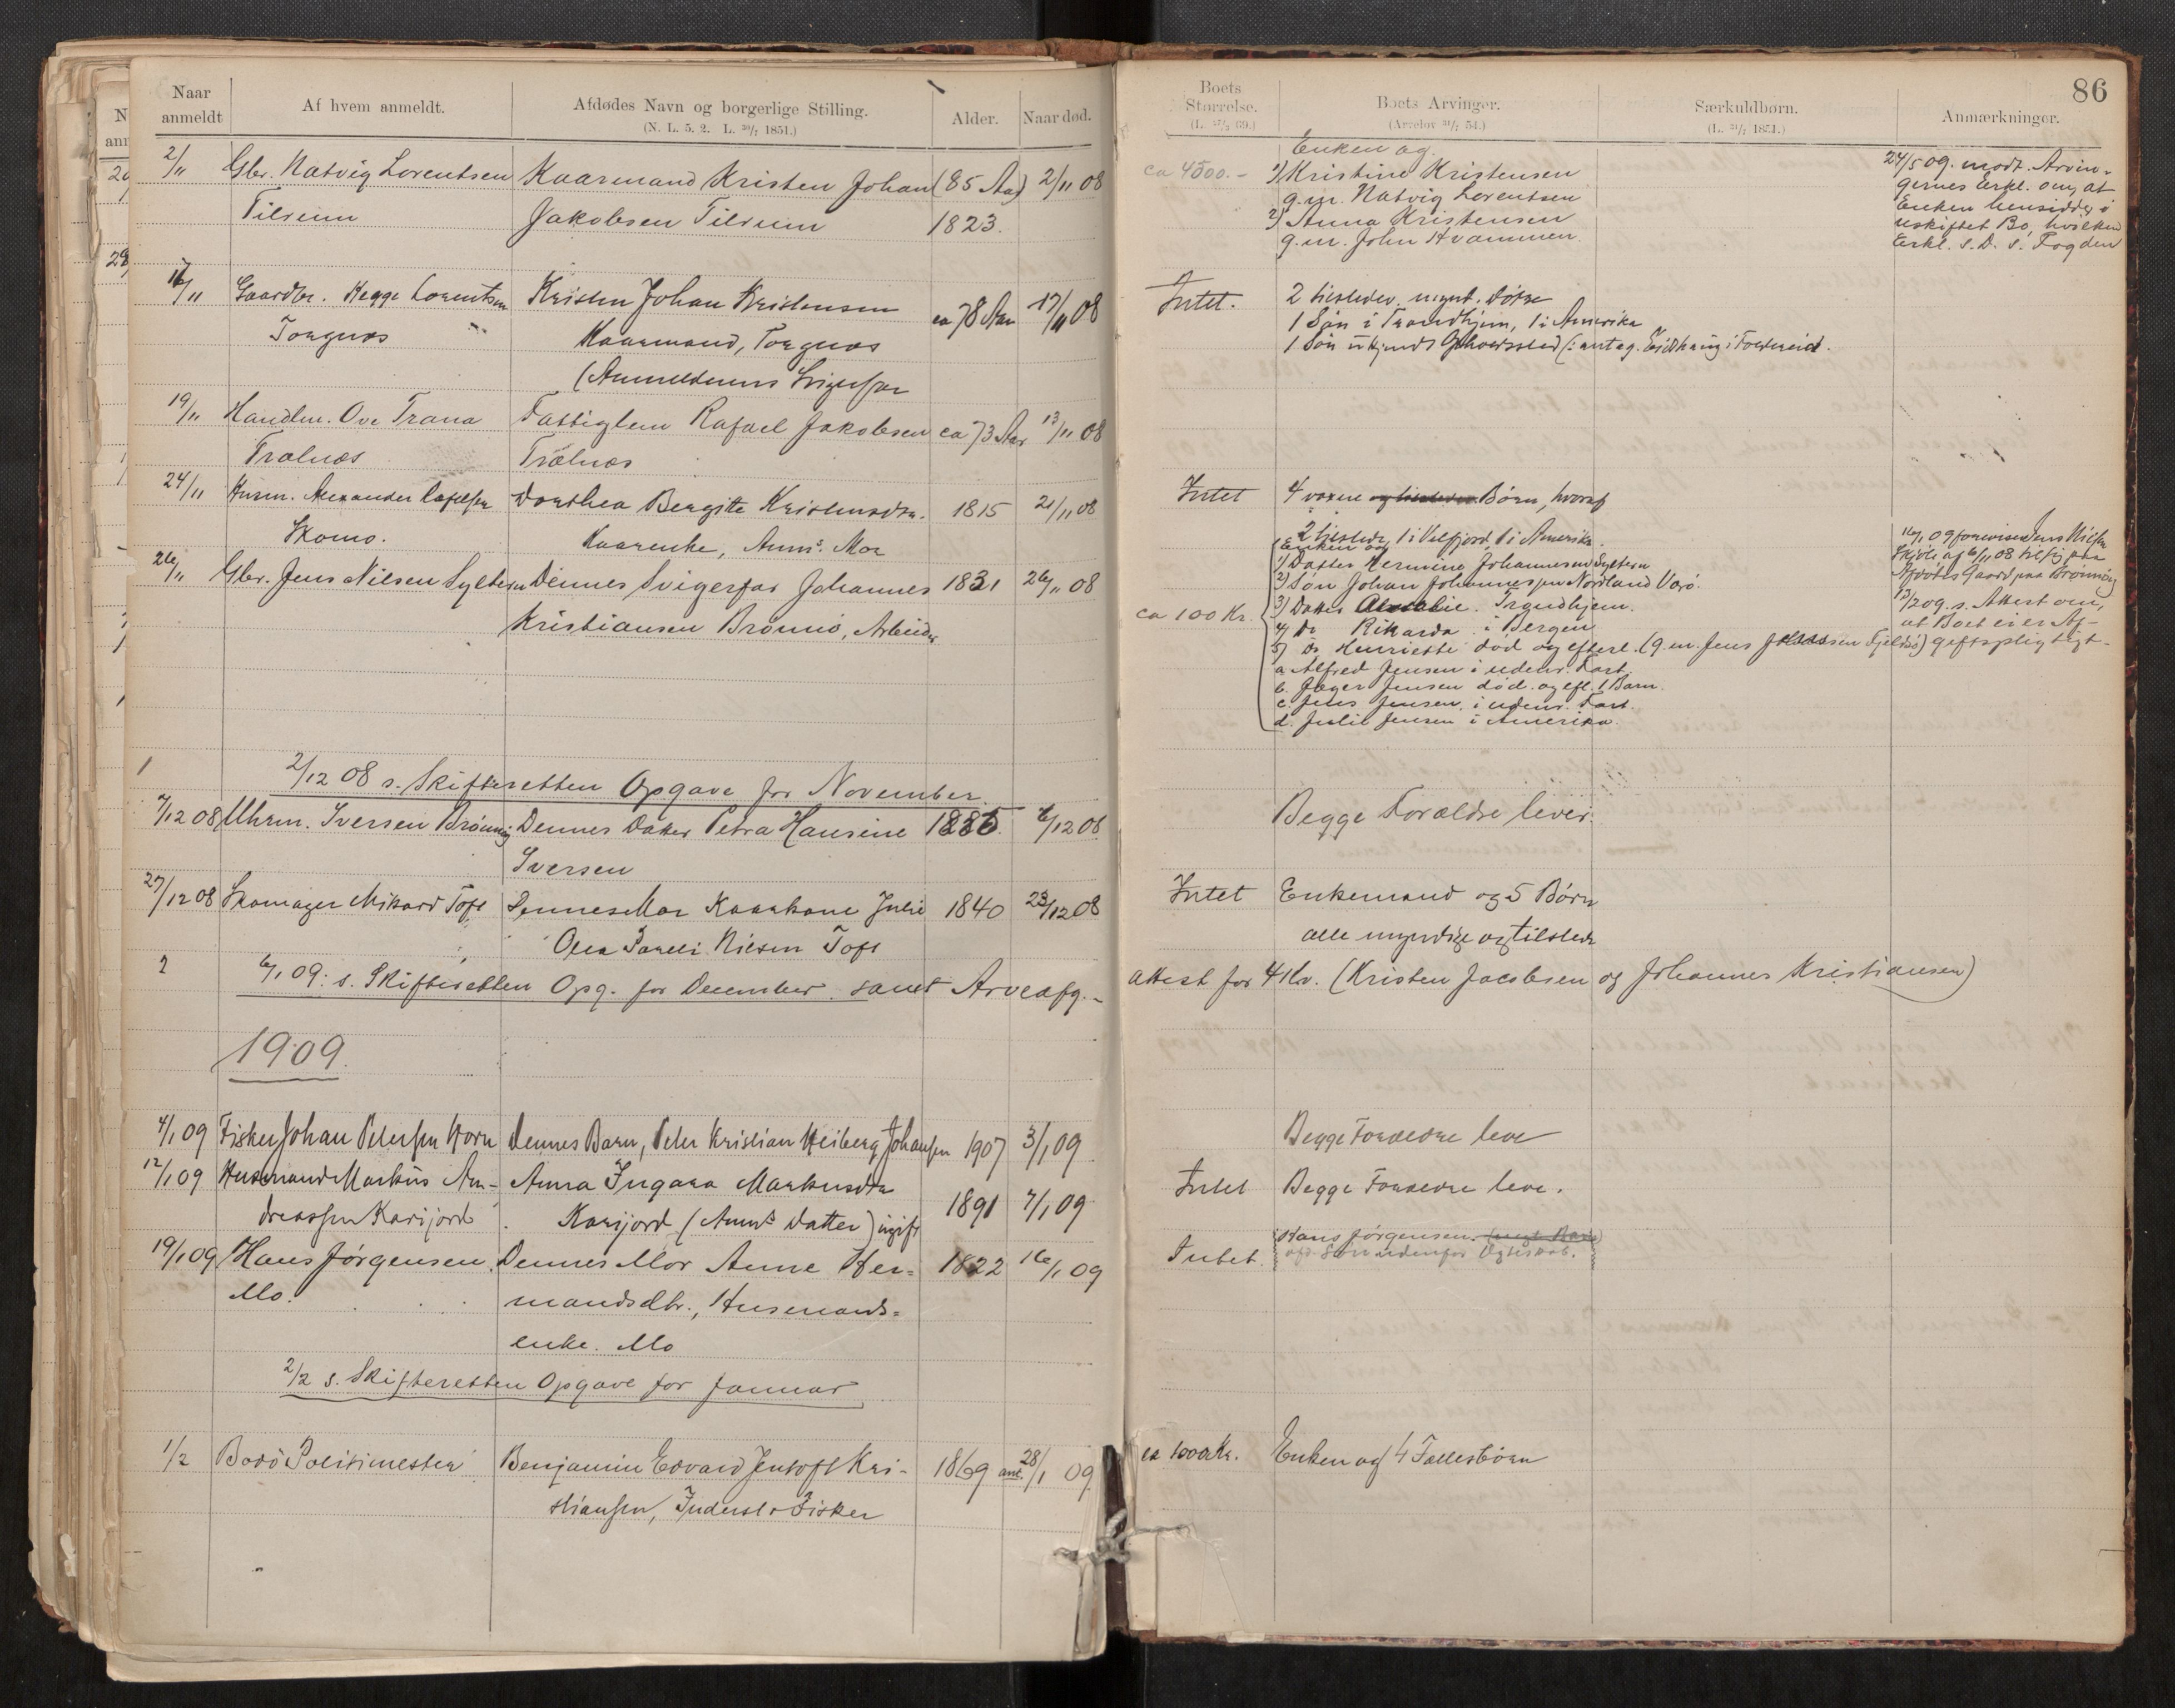 Naar anmeldt
Af hvem anmeldt.
Afdødes Navn og borgerlige Stilling.
(N. L. 5. 2. L. 30/7 1851.)
Alder.
Naar død.
2/11 Gbr. Natvig Lorentsen Kaarmand Kristen Johan (85 Aar) 2/11 08
Tilrum Jakobsen Tilrum 1823.
17/11 Gaardbr. Hegge Lorentsen Kristen Johan Kristensen ca 78 Aar 17/11 08
Torgnæs Kaarmand, Torgnæs
(Anmelderens Svigerfar
19/11 Handlm. Ove Trana Fattiglem Rafael Jakobsen ca 73 Aar 13/11 08
Trælnæs Trælnæs
24/11 Husm. Alexander Dorthea Bergitte Kristensdtr. 1815 21/11 08
Skomo. Kaarenke, Anms. Mor
26/11 Gbr. Jens Nilsen Syltern Dennes Svigerfar Johannes 1831 26/11 08
Kristiansen Brønnø, Arbeider
1 2/12 08 s. Skifteretten Opgave for November
7/12 08 Uhrm. Iversen Brønnø Dennes Datter Petra Hansine 6/12 08
Iversen
27/12 08 Skomager Mikard Toft Dennes Mor Kaarkone Julie 1840 23/12 08
Olea Nilsen Toft
2 6/1 09. s. Skifteretten Opg. for December samt Arveafg.-
1909.
4/1 09 Fisker Johan Petersen Horn Dennes Barn, Peter Kristian Heiberg Johansen 1907 3/1 09
12/1 09 Husmand Markus An- Anna Ingara Markusdtr 1891 7/1 09
dreassen Karijord Karijord (Anms Datter) ugift
19/1 09 Hans Jørgensen Dennes Mor Anne Her- 1822 16/1 09
Mo. mandsdtr., Husmands-
enke. Mo
2/2 s. Skifteretten Opgave for Januar
1/2 Bodø Politimester Benjamin Edvard Jentoft Kri- 1869 ant. 28/1 09
stiansen, Inderst & Fisker
86
Boets Størrelse.
(L. 17/7 69.)
Boets Arvinger.
(Arvelov 31/7 54.)
Særkuldbørn.
(L. 21/7 1851.)
Anmærkninger.
Enken og
ca 4500.- 1) Kristine Kristensen
g.m. Natvig Lorentsen
2) Anna Kristensen
g.m. John Kvammen
24/5 09. modt. Arvin-
gernes Erkl. om, at
Enken hensidder i
uskiftet Bo, hvilken
Erkl. s. D. s. Fogden
Intet. 2 tilstedev. mynd. Døtre
1 Søn i Trondhjem, 1 i Amerika
1 Søn ukjendt Opholdssted
Intet 4 voxne og tilstedev. Børn, hvoraf
2 tilstede, 1 i Velfjord, 1 i Amerika.
Enken og
1) Datter Hermine Johannesen Syltern
2) Søn Johan Johannesen Nordland Værø.
ca 100 Kr. 3) Datter Trondhjem.
4) Do Rikarda i Bergen
5) Do Henriette død og efterl. (g.m. Jens Fjeldsø)
a. Alfred Jensen i udenr. Fart
b. Jøger Jensen død og eft. 1 Barn.
c. Jens Jensen i udenr. Fart.
d. Julie Jensen i Amerika.
16/1 09 foreviser Jens Nilsen
Skjøte af 6/11 08 til sig paa
Afdødes Gaard paa Brønnø
13/2 09. s. Attest om,
at Boet ei er Af-
giftspligtigt.
Begge Forældre lever.
Intet Enkemand og 5 Børn
alle myndige og tilstede
attest for 4 Kr. (Kristen Jacobsen og Johannes Kristiansen)
Begge Forældre leve
Intet Begge Forældre leve.
Hans Jørgensen.
Intet Søn udenfor Ægteskab.
ca 1000 Kr. Enken og 4 Fællesbørn